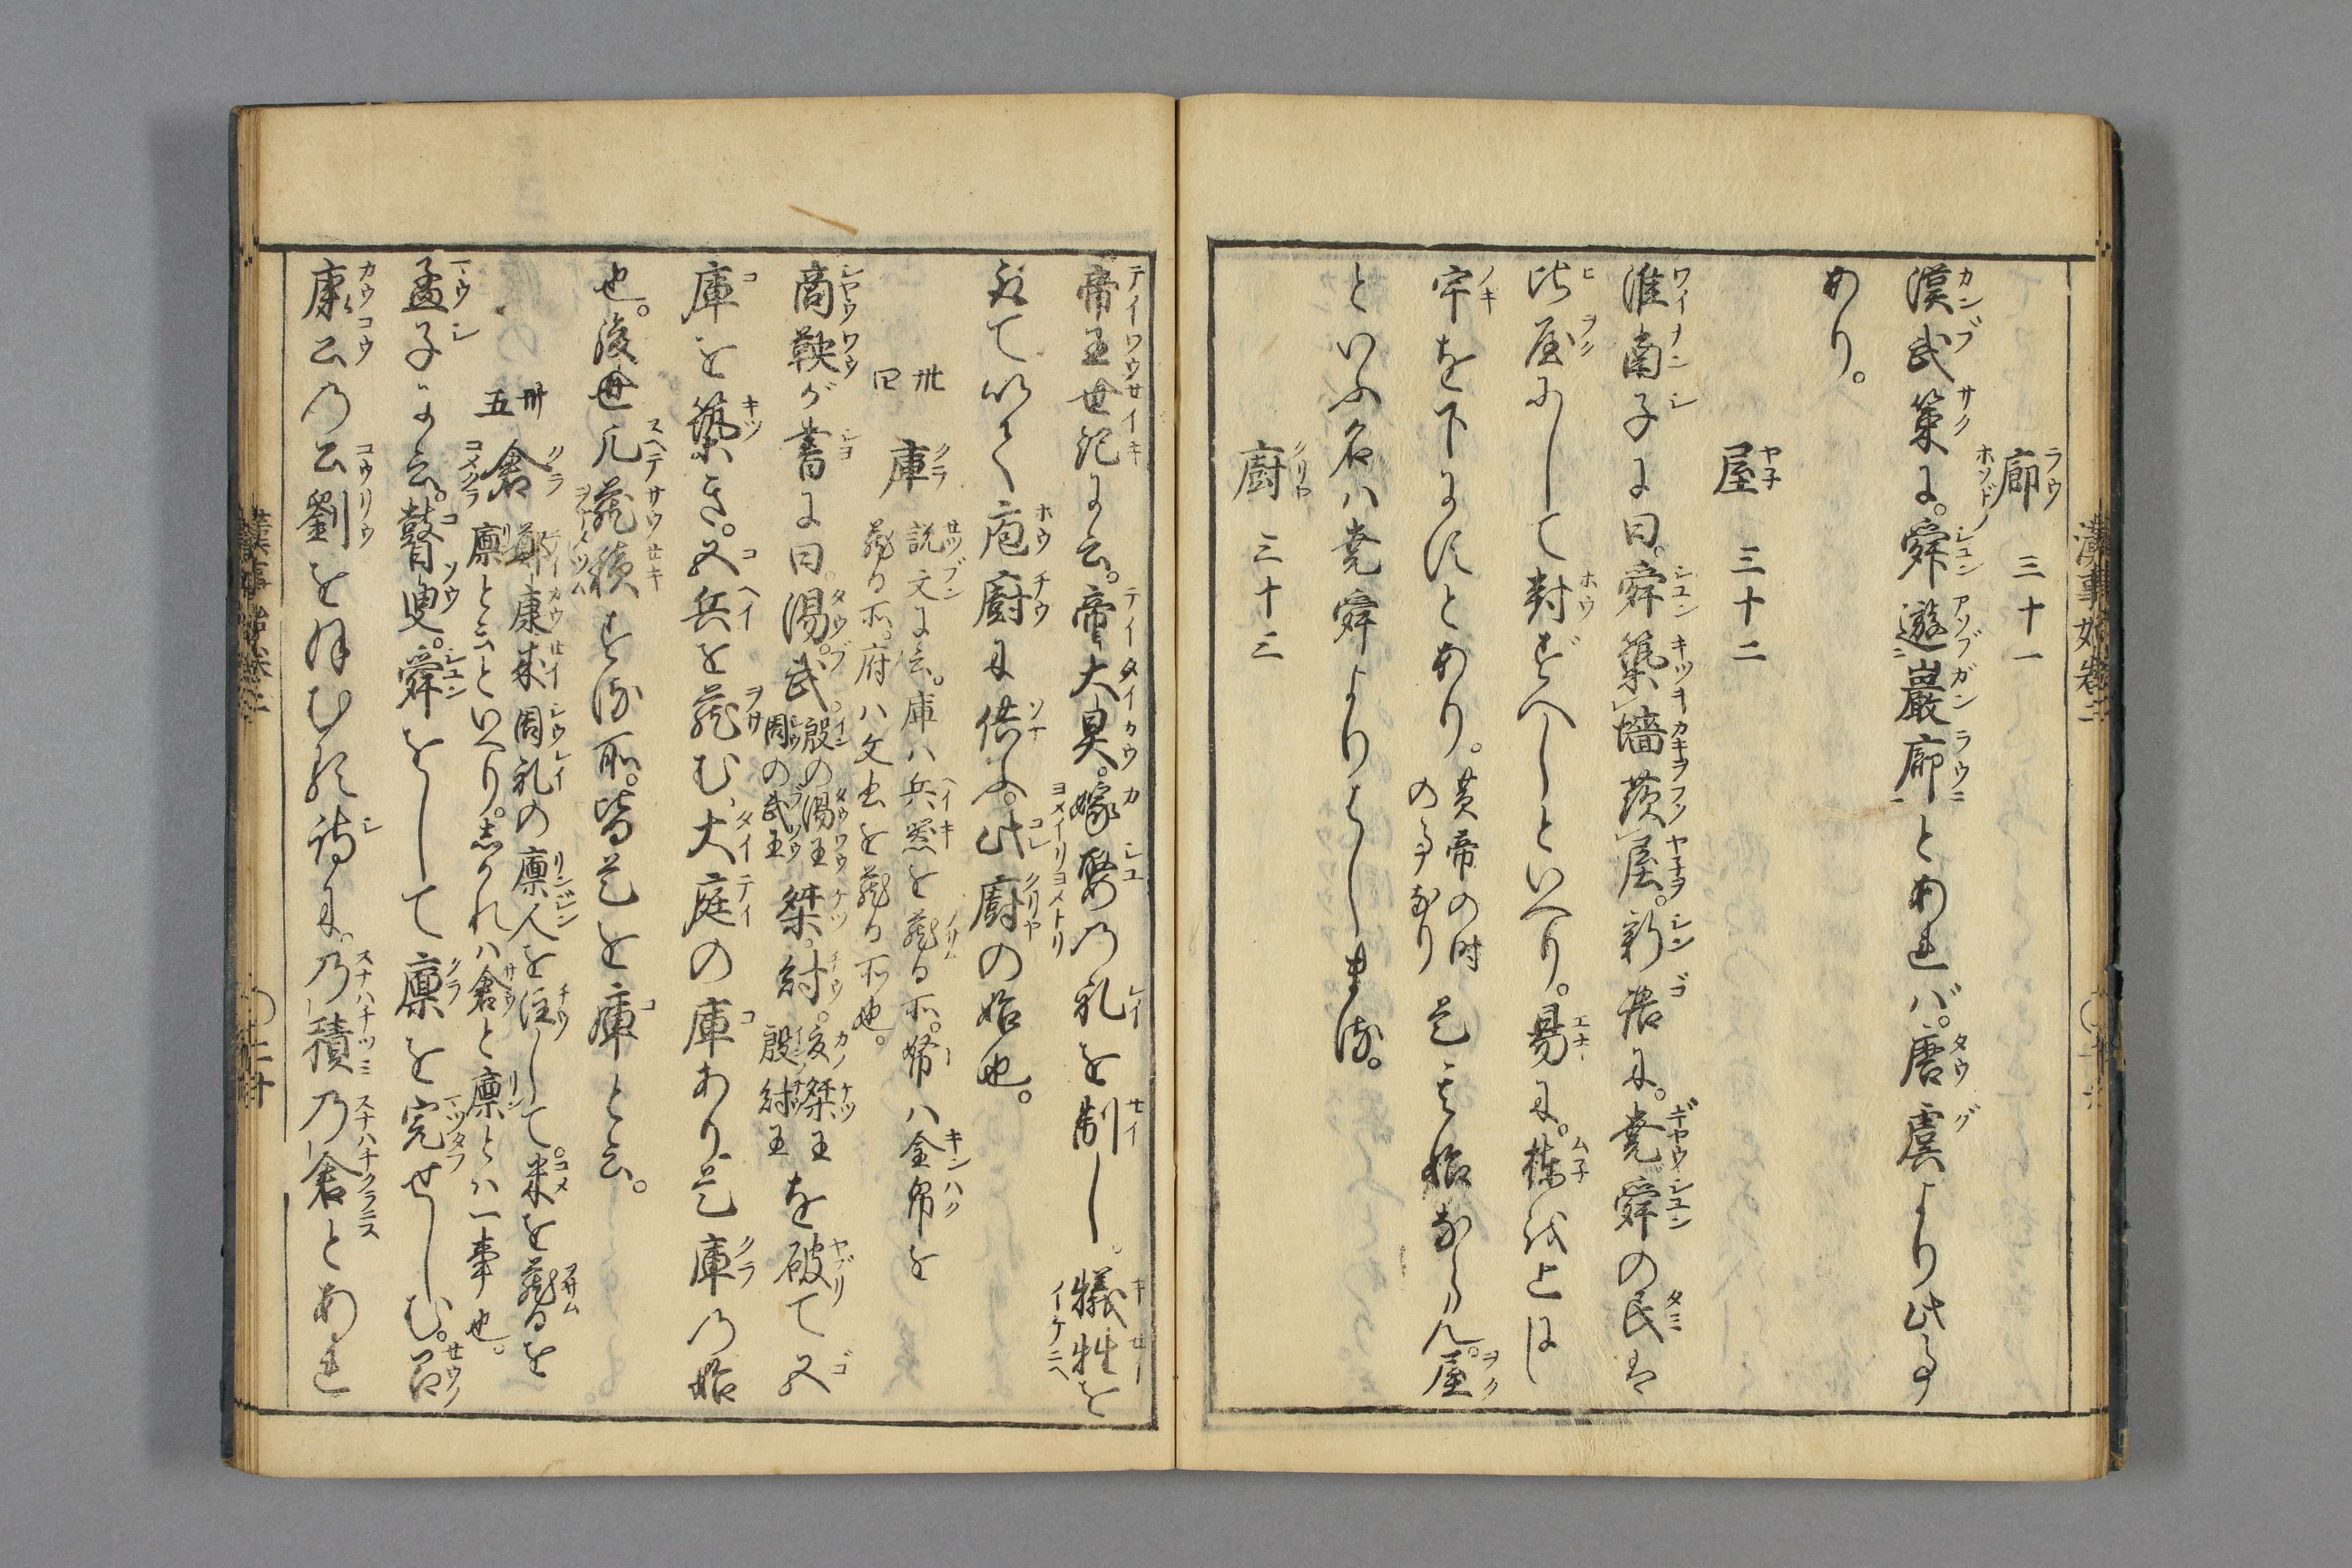 廊 三十一
漢武策に。舜遊巌廊とあれバ。唐虞より此事
あり。
屋 三十二
淮南子に曰。舜築墻茨屋。新語に。堯舜の民は
比屋にして封ずべしといへり。易に。棟を上にし
宇を下にすとあり。黄帝の時
の事なり 是其始ならん。屋
といふ名ハ堯舜よりはじまる。
厨 三十三
帝王世記に云。帝大昊。嫁娶乃礼を制し。犠牲を
取て以て庖厨に供ふ。此厨の始也。
卅四 庫 説文に云。庫ハ兵器を蔵る所。帑ハ金帛を
蔵る所。府ハ文書を蔵る所也。
商鞅が書に曰。湯。武。殷の湯王
周の武王 桀。紂。夏桀王
殷紂王 を破て又
庫を築き。又兵を蔵む、大庭の庫あり是庫乃始
也。後世凡蔵積する所。皆是を庫と云。
卅五 倉 鄭康成周礼の廩人を注して。米を蔵るを
廩と云といへり。しかれハ倉と廩とハ一事也。
孟子に云。瞽叟。舜をして廩を完せしむ。召
康公乃公劉を戒むる詩に。乃積乃倉とあれ
漢事始巻二